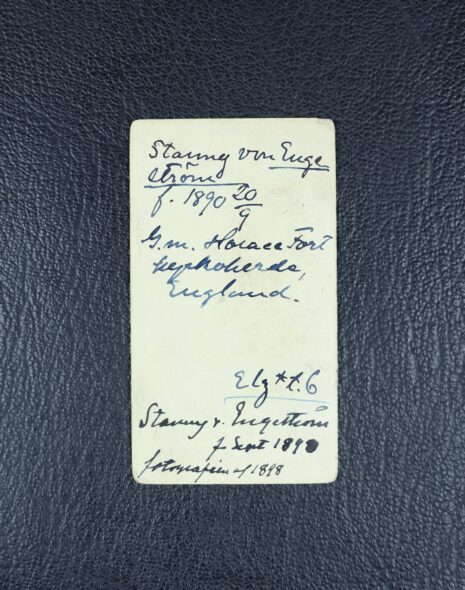 Stanny von Enge
ström
f. 1890 20/9
G.m. Horace Fort
England.
Elg * t. 6
Stanny v. Engeström
f Sept 1890
fotografien af 1898